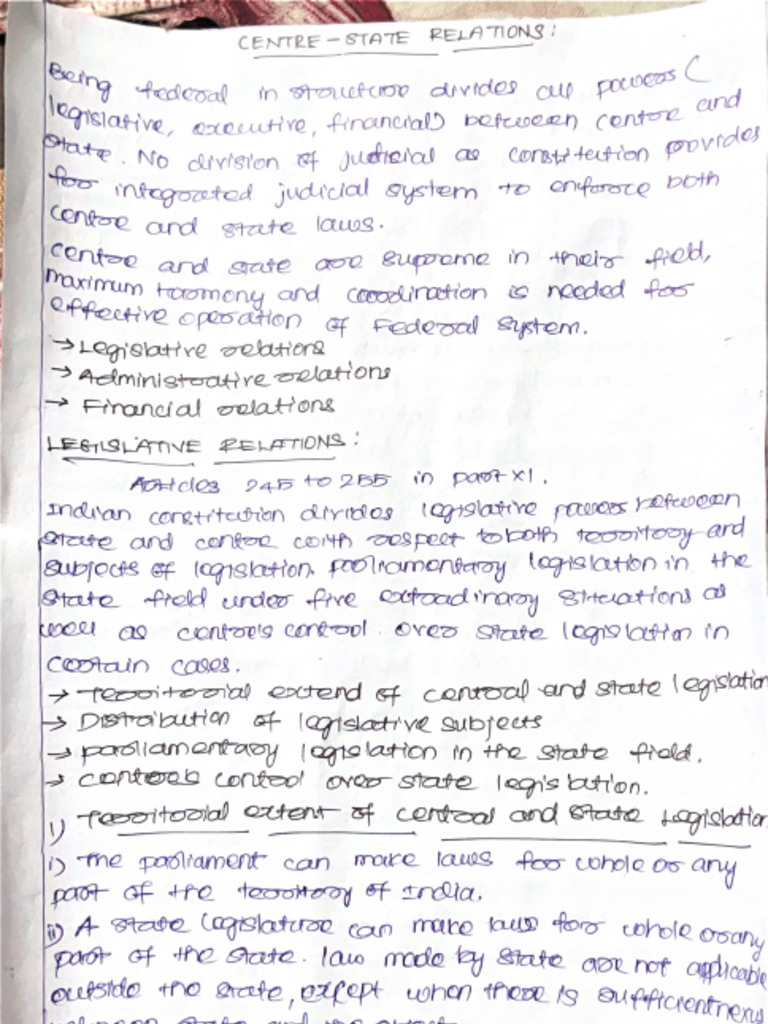 CENTRE-STATE RELATIONS:
Being federal in structure divides all powers (
legislative, executive, financial) between centre and
state. No division of judicial as constitution provides
for integrated judicial system to enforce both
centre and state laws.
Centre and state are supreme in their field,
maximum harmony and coordination is needed for
effective operation of Federal system.
→ Legislative relations
→ Administrative relations
→ Financial relations
LEGISLATIVE RELATIONS:
Articles 245 to 255 in part XI.
Indian constitution divides legislative powers between
state and centre with respect to both territory and
subjects of legislation. parliamentary legislation in the
state field under five extraordinary situations as
well as centre's control over state legislation in
certain cases.
→ Territorial extend of central and state legislation
→ Distribution of legislative subjects
→ parliamentary legislation in the state field.
→ centre's control over state legislation.
1) Territorial extent of central and state Legislation
i) The parliament can make laws for whole or any
part of the territory of India.
ii) A state legislature can make laws for whole or any
part of the state. law made by state are not applicable
outside the state, except when there is sufficient nexus